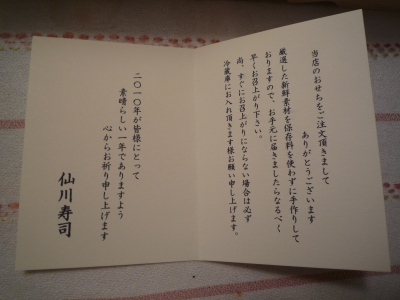 当店のおせちをご注文頂きまして
ありがとうございます
厳選した新鮮素材を保存料を使わずに手作りして
おりますので、お手元に届きましたらなるべく
早くお召上がり下さい。
尚、すぐにお召上がりにならない場合は必ず
冷蔵庫にお入れ頂きます様お願い申し上げます。
二〇一〇年が皆様にとって
素晴らしい一年でありますよう
心からお祈り申し上げます
仙川寿司